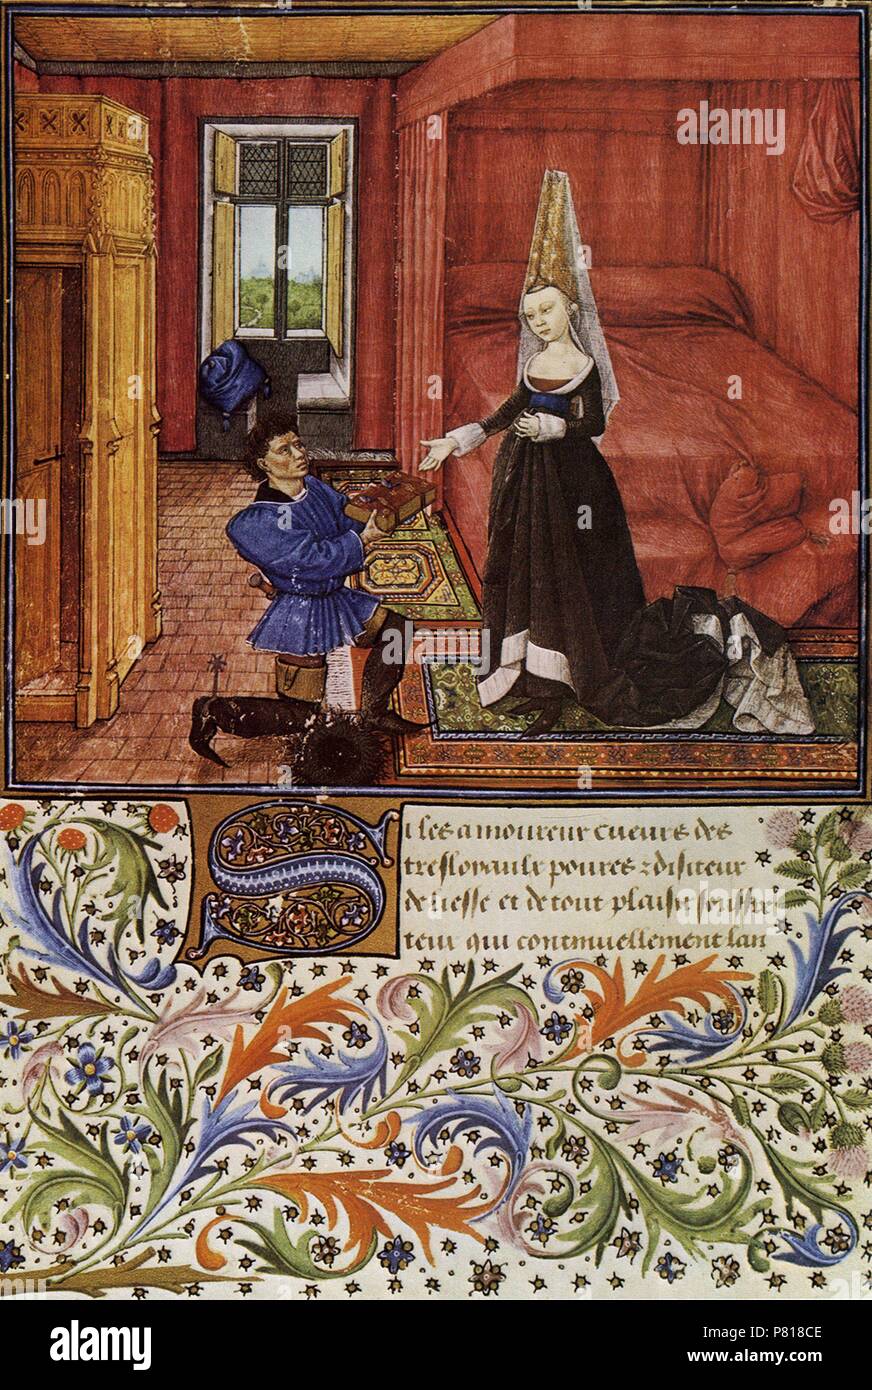 Si les amoureur cueurs des
tresloyaulx poures 2 disiteur
de liesse et de tout plaisir souffre
teur qui continuellement lan
alamy
a
alamy
Image ID: P818CE
www.alamy.com